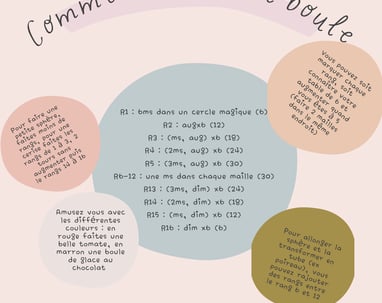 boule
Pour faire une
petite sphère,
faites moins de
rangs, pour une
cerise faites les
rangs de 1 à 3,
tours sans
augmenter puis
le rangs 15 à 16
Vous pouvez soit
marquer chaque
rang, soit
connaître votre
table de 6 et
augmenter quand
vous êtes à 5
(faire 2 mailles
dans le même
endroit)
R1 : 6ms dans un cercle magique (6)
R2 : augx6 (12)
R3 : (ms, aug) x6 (18)
R4 : (2ms, aug) x6 (24)
R5 : (3ms, aug) x6 (30)
R6-12 : une ms dans chaque maille (30)
R13 : (3ms, dim) x6 (24)
R14 : (2ms, dim) x6 (18)
R15 : (ms, dim) x6 (12)
R16 : dim x6 (6)
Amusez vous avec
les différentes
couleurs : en
rouge faites une
belle tomate, en
marron une boule
de glace au
chocolat
Pour allonger la
sphère et la
transformer en
tube (ex
poireau), vous
pouvez rajouter
des rangs entre
le rang 6 et 12